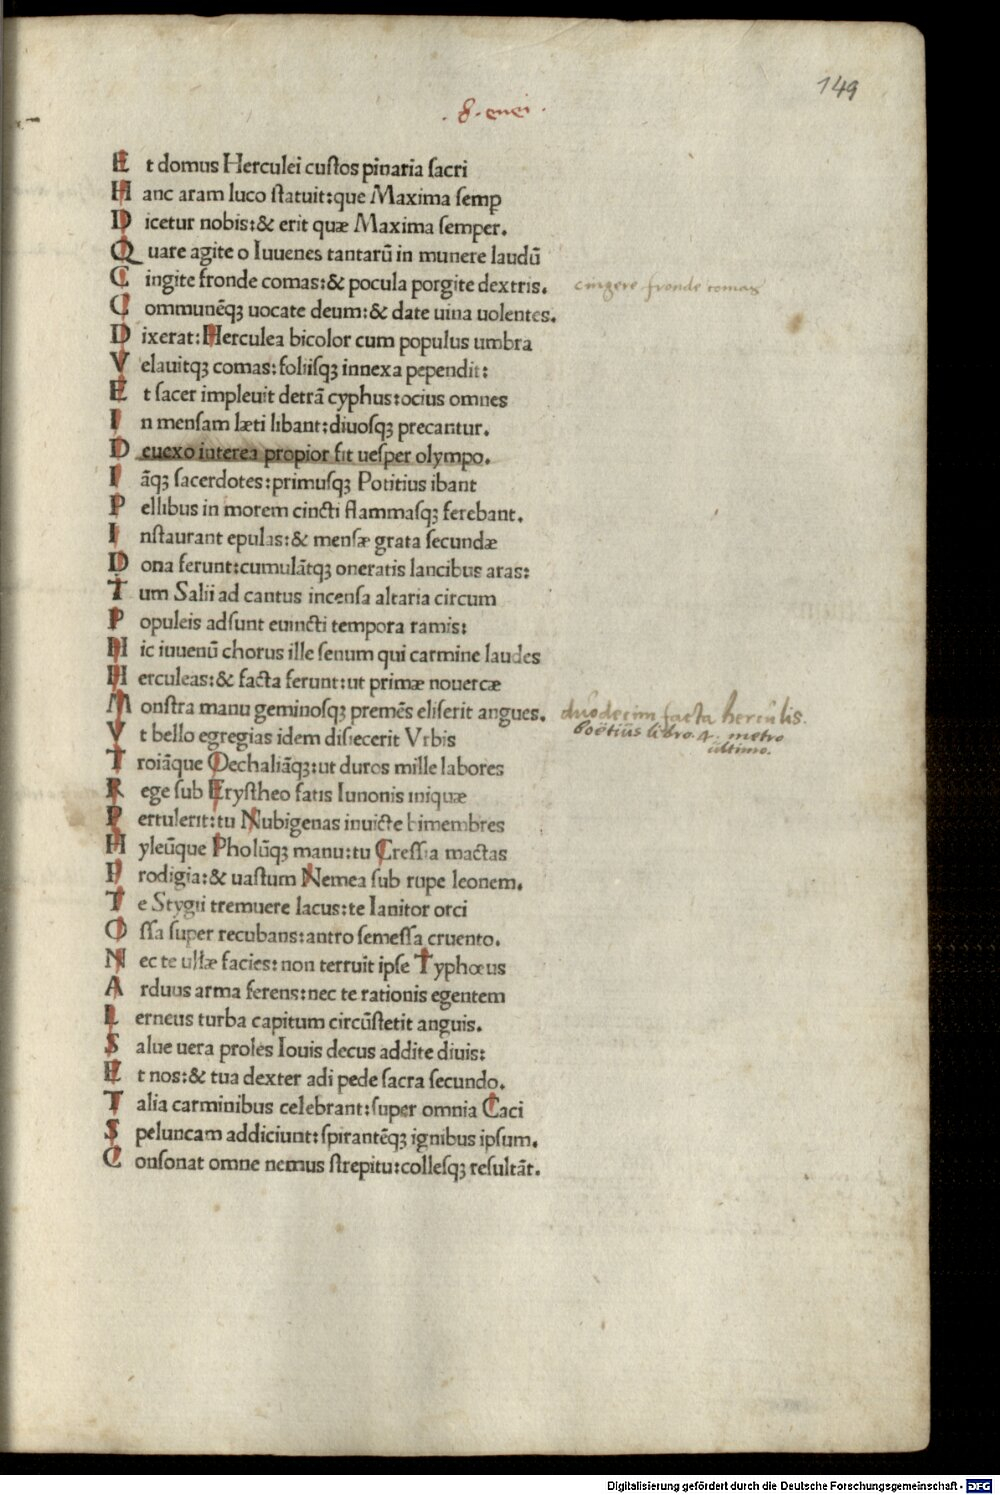 149
. 8 . enei .
Et domus Herculei custos pinaria sacri
Hanc aram luco statuit: que Maxima semꝑ
Dicetur nobis: & erit quæ Maxima semper.
Quare agite o Iuuenes tantarū in munere laudū
Cingite fronde comas: & pocula porgite dextris.
cingere fronde comas
Communēqꝫ uocate deum: & date uina uolentes.
Dixerat: Herculea bicolor cum populus umbra
Velauitqꝫ comas: foliisqꝫ innexa pependit:
Et sacer impleuit detrā cyphus: ocius omnes
In mensam læti libant: diuosqꝫ precantur.
Deuexo interea propior fit uesper olympo.
Iāqꝫ sacerdotes: primusqꝫ Potitius ibant
Pellibus in morem cincti flammasqꝫ ferebant.
Instaurant epulas: & mensæ grata secundæ
Dona ferunt: cumulātqꝫ oneratis lancibus aras:
Tum Salii ad cantus incensa altaria circum
Populeis adsunt euincti tempora ramis:
Hic iuuenū chorus ille senum qui carmine laudes
Herculeas: & facta ferunt: ut primæ nouercæ
Monstra manu geminosqꝫ premēs eliserit angues.
duodecim facta herculis.
boetius libro. 4. metro
ultimo.
Vt bello egregias idem disiecerit Vrbis
Troiāque Oechaliāqꝫ: ut duros mille labores
Rege sub Erystheo fatis Iunonis iniquæ
Pertulerit: tu Nubigenas inuicte bimembres
Hyleūque Pholūqꝫ manu: tu Cressia mactas
Prodigia: & uastum Nemea sub rupe leonem.
Te Stygii tremuere lacus: te Ianitor orci
Ossa super recubans: antro semessa cruento.
Nec te ullæ facies: non terruit ipse Typhœus
Arduus arma ferens: nec te rationis egentem
Lerneus turba capitum circūstetit anguis.
Salue uera proles Iouis decus addite diuis:
Et nos: & tua dexter adi pede sacra secundo.
Talia carminibus celebrant: super omnia Caci
Speluncam addiciunt: spirantēqꝫ ignibus ipsum.
Consonat omne nemus strepitu: collesqꝫ resultāt.
Digitalisierung gefördert durch die Deutsche Forschungsgemeinschaft - DFG